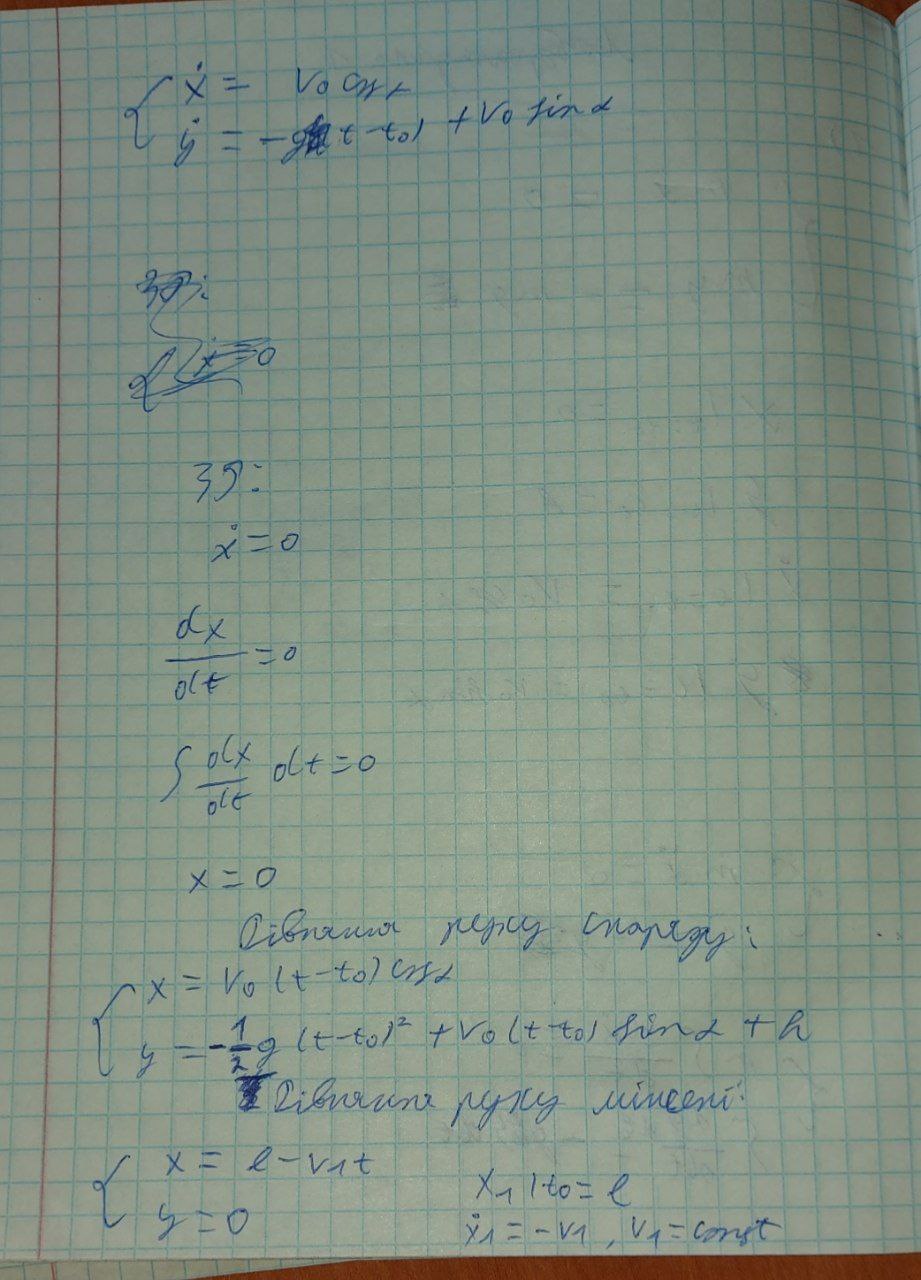 ẋ = v₀ cos α
ẏ = -g(t-t₀) + v₀ sin α
ẋ = 0
ЗЯ:
ẋ = 0
dx/dt = 0
∫ dx/dt dt = 0
x = 0
Рівняння руху снаряду:
x = v₀ (t-t₀) cos α
y = -1/2 g (t-t₀)² + v₀ (t-t₀) sin α + h
Рівняння руху мішені:
x = l - v₁t
x₁|t₀ = l
y = 0
ẋ₁ = -v₁, v₁ = const